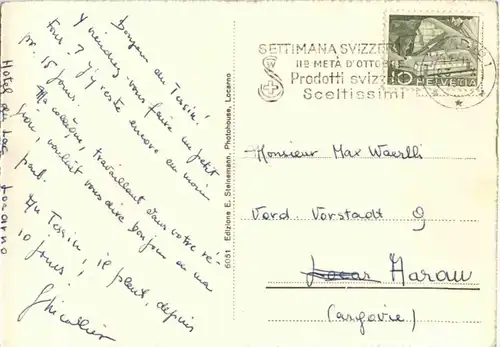 Bonjour du Tessin!
Y viendrez-vous faire un petit
tour? J'y reste encore au moins
pr. 15 jours.
Ma collègue, travaillant dans votre ré-
gion, voulait vous dire bonjour de ma
part.
Au Tessin, il pleut, depuis
10 jours!
Hotel du Lac Locarno
6051 Edizione E. Steinemann, Photohouse, Locarno
SETTIMANA SVIZZER
IIa METÀ D'OTTOBRE
Prodotti svizz
Sceltissimi
10 HELVETIA
Monsieur Max Waerlli
Vord. Vorstadt 9
Aarau
(Argovie)